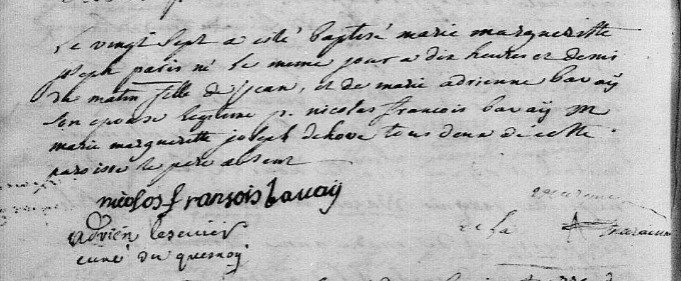 Le vingt Sept a eté baptisé marie margueritte
joseph paris né le meme jour a dix heures et demis
du matin fille de jean, et de marie adrienne bavaÿ
Son epouse legitime p. nicolas francois bavaÿ m
marie margueritte joseph dehove tous deux de cette
paroisse le pere absent
nicolas fransois bavaÿ
adrien
curé du quesnoy